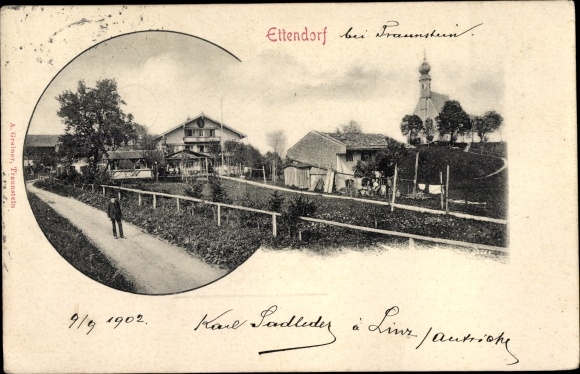 Ettendorf bei Traunstein.
A. Greiner, Traunstein
9/9 1902. Karl Sadleder à Linz /autriche